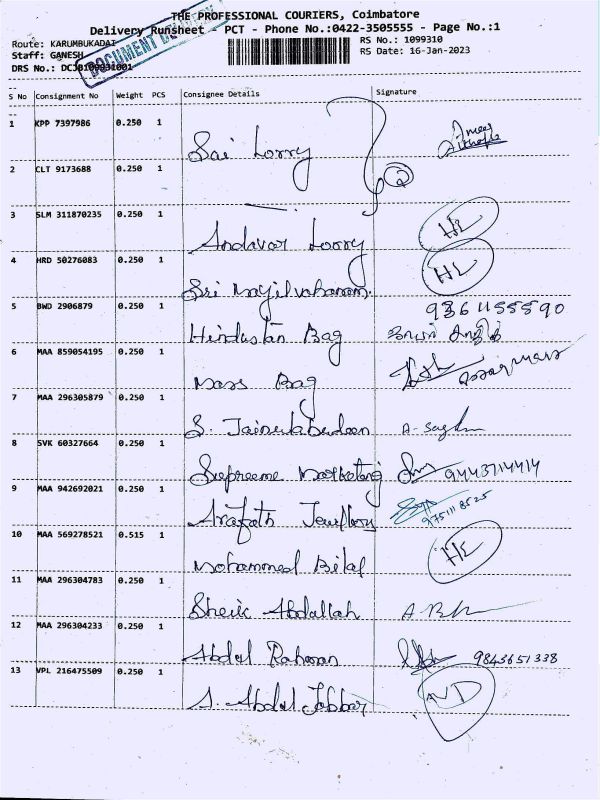 THE PROFESSIONAL COURIERS, Coimbatore
Delivery Runsheet - PCT - Phone No.:0422-3505555 - Page No.:1
Route: KARUMBUKADAI
RS No.: 1099310
Staff: GANESH
RS Date: 16-Jan-2023
DRS No.:
DOCUMENT
S No Consignment No Weight PCS Consignee Details Signature
1 KPP 7397986 0.250 1 Sai Lorry
2 CLT 9173688 0.250 1 2
3 SLM 311870235 0.250 1 Andavar Lorry HL
4 HRD 50276083 0.250 1 Sri Mayilvahanam HL
5 BWD 2906879 0.250 1 Hindustan Bag 9361155590
6 MAA 859054195 0.250 1 Mass Bag
7 MAA 296305879 0.250 1 S. Jainulabudeen
8 SVK 60327664 0.250 1 Supreeme Marketing 9443714414
9 MAA 942692021 0.250 1 Arafath Jewllery 9751118525
10 MAA 569278521 0.515 1 Mohammed Bilal HL
11 MAA 296304783 0.250 1 Sheik Abdallah
12 MAA 296304233 0.250 1 Abdul Rahman 9843651338
13 VPL 216475509 0.250 1 S. Abdul Jabbar